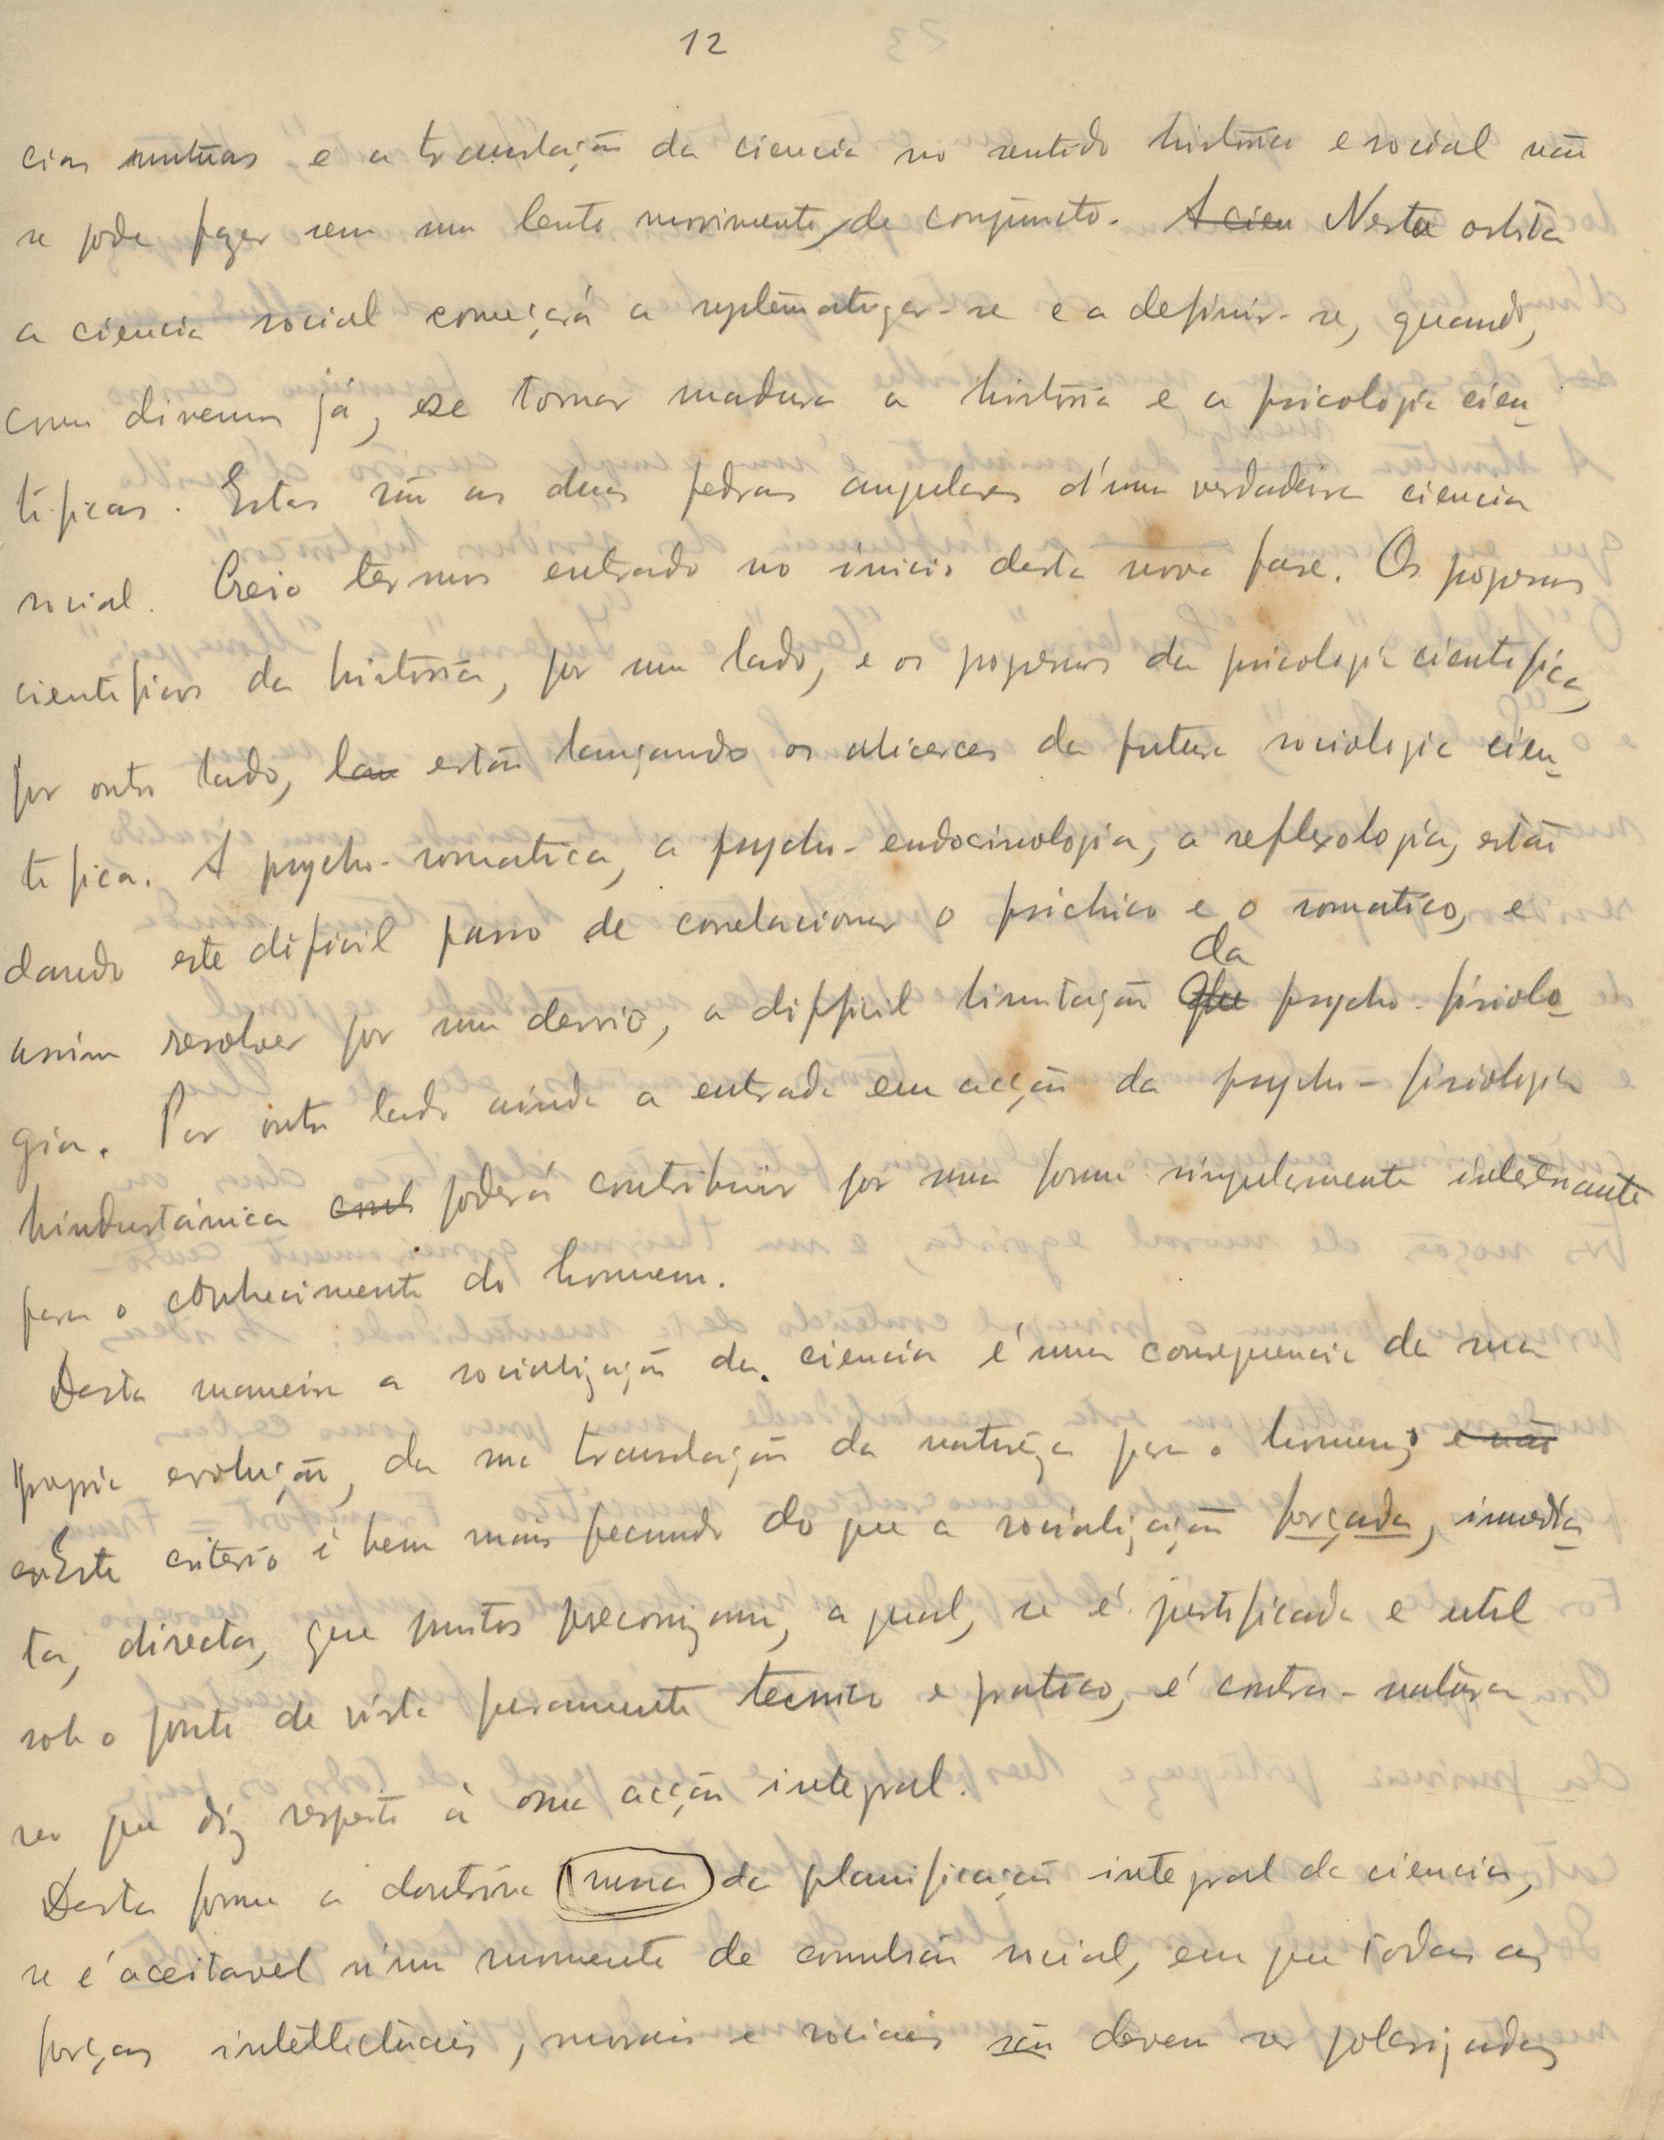 12
cias mutuas e a translação da ciencia no sentido historico e social não
se pode fazer sem um lento movimento de conjuncto. A cien Nesta orbita
a ciencia social começará a systematizar-se e a definir-se, quando,
como dissemos já, se tornar madura a historia e a psicologia cien-
tificas. Estas são as duas pedras angulares d'uma verdadeira ciencia
social. Creio termos entrado no inicio desta nova fase. Os progressos
cientificos da historia, por um lado, e os progressos da psicologia cientifica,
por outro lado, lan estão lançando os alicerces da futura sociologia cien-
tifica. A psycho-somatica, a psycho-endocrinologia, a reflexologia, estão
dando este dificil passo de correlacionar o psichico e o somatico, e
da
assim resolver por um desvio, a difficil limitação que psycho-fisiolo-
gia. Por outro lado ainda a entrada em acção da psycho-fisiologia
hindustánica cont poderá contribuir por uma forma singularmente interessante
para o conhecimento do homem.
Desta maneira a socialização da ciencia é uma consequencia da sua
propria evolução, da sua translação da natureza para o homem; e não
Este criterio é bem mais fecundo do que a socialização forçada, imedia-
ta, directa, que muitos preconizam, a qual, se é justificada e util
sob o ponto de vista puramente tecnico e pratico, é contra-natura
no que diz respeito á sua acção integral.
Desta forma a doutrina russa da planificação integral da ciencia,
se é aceitavel n'um momento de convulsão social, em que todas as
forças intellectuais, morais e sociais são devem ser polarizadas